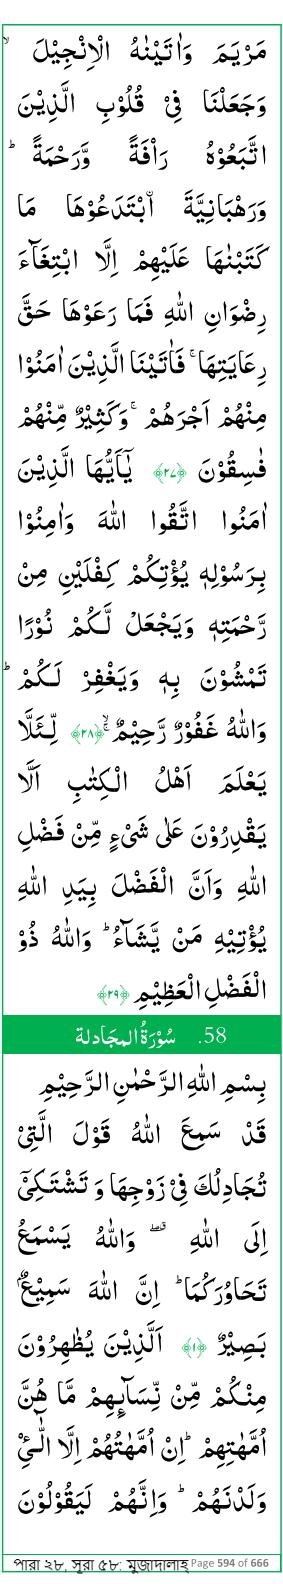 مَرْيَمَ وَاٰتَيْنٰهُ الْاِنْجِيْلَ ۙ
وَجَعَلْنَا فِيْ قُلُوْبِ الَّذِيْنَ
اتَّبَعُوْهُ رَاْفَةً وَّرَحْمَةً ؕ
وَرَهْبَانِيَّةَ ۨابْتَدَعُوْهَا مَا
كَتَبْنٰهَا عَلَيْهِمْ اِلَّا ابْتِغَآءَ
رِضْوَانِ اللّٰهِ فَمَا رَعَوْهَا حَقَّ
رِعَايَتِهَا ۚ فَاٰتَيْنَا الَّذِيْنَ اٰمَنُوْا
مِنْهُمْ اَجْرَهُمْ ۚ وَكَثِيْرٌ مِّنْهُمْ
فٰسِقُوْنَ ﴿۲۷﴾ يٰۤاَيُّهَا الَّذِيْنَ
اٰمَنُوا اتَّقُوا اللّٰهَ وَاٰمِنُوْا
بِرَسُوْلِهٖ يُؤْتِكُمْ كِفْلَيْنِ مِنْ
رَّحْمَتِهٖ وَيَجْعَلْ لَّكُمْ نُوْرًا
تَمْشُوْنَ بِهٖ وَيَغْفِرْ لَكُمْ ؕ
وَاللّٰهُ غَفُوْرٌ رَّحِيْمٌ ۚۙ ﴿۲۸﴾ لِّئَلَّا
يَعْلَمَ اَهْلُ الْكِتٰبِ اَلَّا
يَقْدِرُوْنَ عَلٰى شَيْءٍ مِّنْ فَضْلِ
اللّٰهِ وَاَنَّ الْفَضْلَ بِيَدِ اللّٰهِ
يُؤْتِيْهِ مَنْ يَّشَآءُ ؕ وَاللّٰهُ ذُو
الْفَضْلِ الْعَظِيْمِ ﴿۲۹﴾
58. سُوْرَةُ المجَادلة
بِسْمِ اللّٰهِ الرَّحْمٰنِ الرَّحِيْمِ
قَدْ سَمِعَ اللّٰهُ قَوْلَ الَّتِيْ
تُجَادِلُكَ فِيْ زَوْجِهَا وَ تَشْتَكِيْۤ
اِلَى اللّٰهِ ۖ ۗ وَاللّٰهُ يَسْمَعُ
تَحَاوُرَكُمَا ؕ اِنَّ اللّٰهَ سَمِيْعٌۢ
بَصِيْرٌ ﴿۱﴾ اَلَّذِيْنَ يُظٰهِرُوْنَ
مِنْكُمْ مِّنْ نِّسَآىِٕهِمْ مَّا هُنَّ
اُمَّهٰتِهِمْ ؕ اِنْ اُمَّهٰتُهُمْ اِلَّا الّٰٓـِٔيْ
وَلَدْنَهُمْ ؕ وَاِنَّهُمْ لَيَقُوْلُوْنَ
পারা ২৮, সূরা ৫৮: মুজাদালাহ্ Page 594 of 666